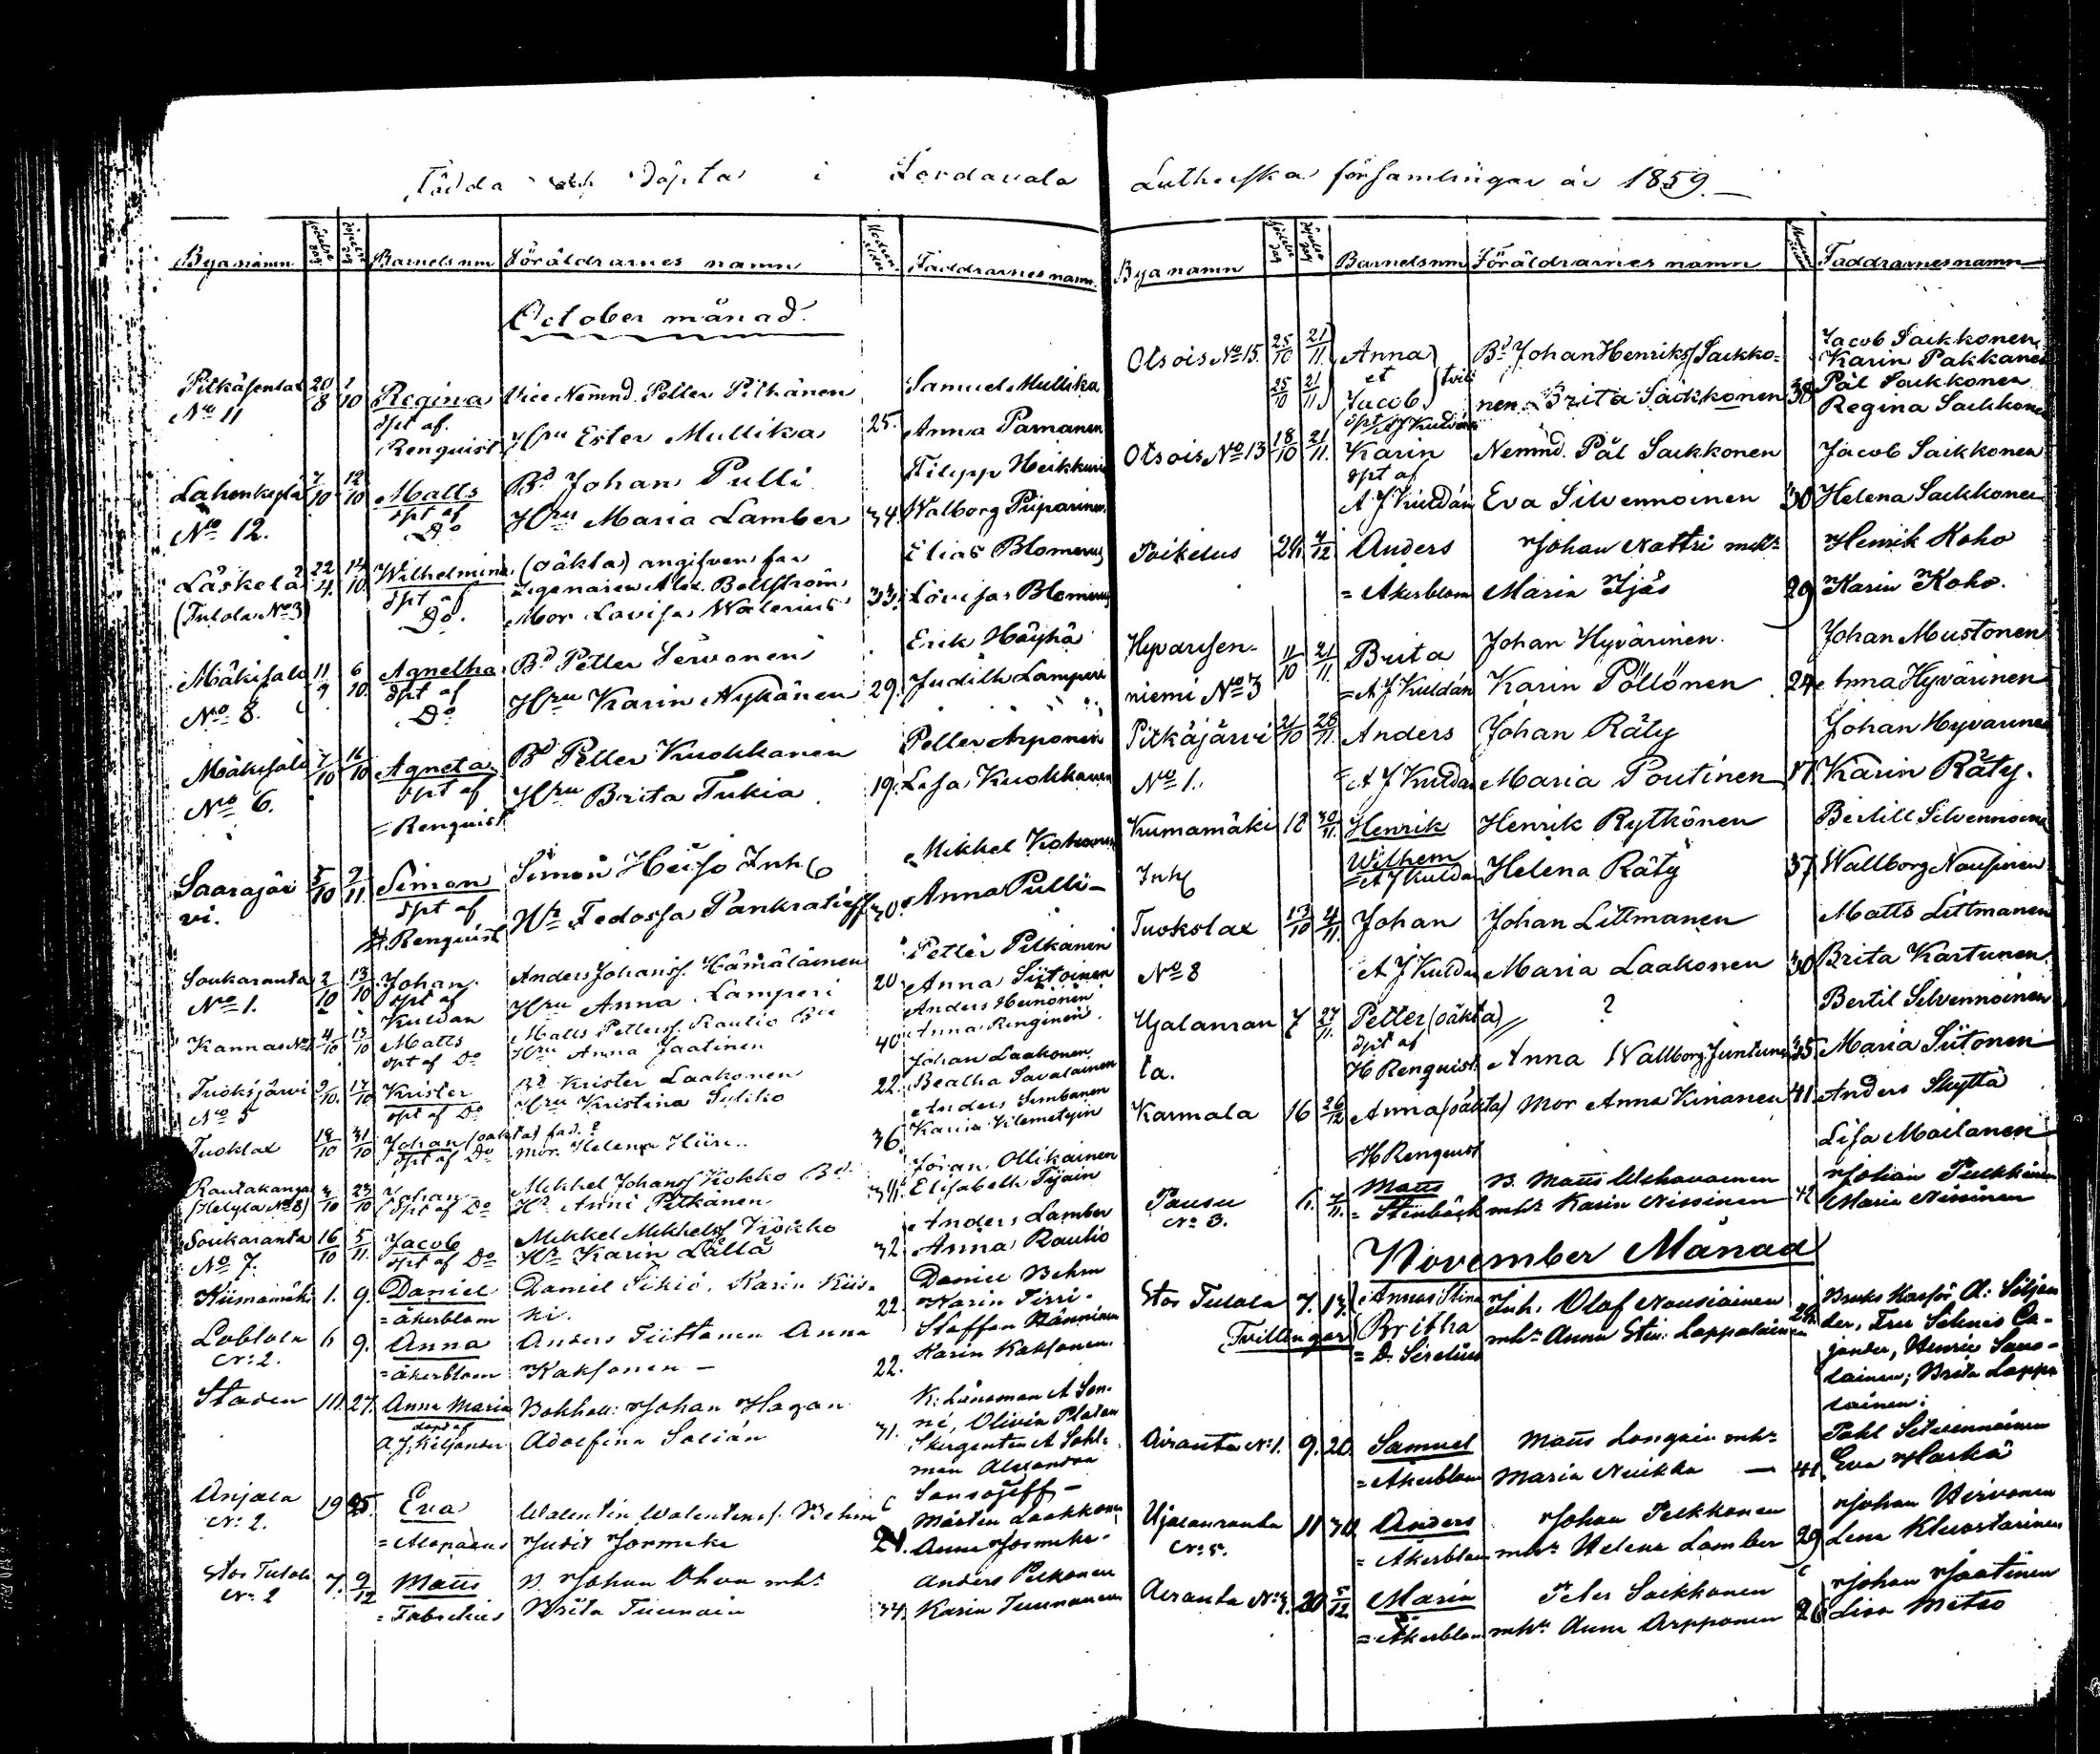 Födda och döpta i Sordavala
Byanamn Födelse dag Döpelse dag Barnets nm Föräldrarnes namn Moderns ålder Faddrarnes namn
October månad.
Pitkäsenlax 20/8 1/10 Regina Vice Nämnd. Petter Pitkänen Samuel Mullikka
No 11 dpt af Renquist Hru Ester Mullika 25. Anna Parnanen
Lahenkylä 7/10 12/10 Matts Bd Johan Pulli Filipp Heikkuri
No 12. dpt af Do Hru Maria Lamber 34. Walborg Piiparinen
Läskelä 22/4 14/10 Wilhelmina (oäkta) angifven far Elias Blomerus
(Tulola No 3) dpt af Legenären Alex. Bollström
Do. Mor Lovisa Walerius 33. Lovisa Blomerus
Mäkisalo 11/9 6/10 Agnetha Bd Petter Servonen Erik Häyhä
No 8. dpt af Do Hru Karin Nykänen 29. Judith Lamperi
Mäkisalo 7/10 16/10 Agneta Bd Petter Kuokkanen Petter Arponen
No 6. dpt af Hru Brita Tukia 19. Lisa Kuokkanen
= Renquist
Saarajär 5/10 2/11 Simon Simon Heiso Inh Mikkel Kohonen
vi. dpt af H. Renquist Hr Fedossa Pankratieff 30. Anna Pulli –
Soukaranta 2/10 13/10 Johan Anders Johanss. Hämäläinen Petter Pitkänen
No 1. dpt af Kuldan Hru Anna Lamperi 20. Anna Siitoinen
Kannas No 4/10 13/10 Matts Matts Petterss. Rautio Bd Anders Heinonen
dpt af Do Hru Anna Jaatinen 40 Anna Ringinen
Tuoksjärvi 9/10. 17/10 Krister Bd Krister Laakonen Johan Laakonen
No 5 dpt af Do Hru Kristina Sutiko 22. Beatha Savalainen
Tuoklax 18/10 31/10 Johan (oäkta) fad. ? Anders Simbanen
dpt af Do Mor. Helena Hiire.. 36. Karin Vilemetyin
Rautakangas 3/10 23/10 Johan Mikkel Johanss Kokko Bd. Jöran Ollikainen
(Helylä No 8) dpt af Do Hr Anni Pitkänen 34. Elisabeth Tijain
Soukaranta 16/10 5/11 Jacob Mikkel Mikkelss Kokko Anders Lamber
No 7. dpt af Do Hr Karin Lällä 32 Anna Rautio
Kiimamäki 1. 9. Daniel Daniel Sikiö, Karin Kiis- Daniel Behm
= Åkerblom ki. 22 Karin Tirri.
Loblola 6 9. Anna Anders Tiittanen Anna Staffan Hänninen
No 2. = Åkerblom Kaksonen – 22. Karin Kaksonen.
Staden 111 27. Anna Maria Bokhåll: Johan Hagan K: Länsman A Son-
döpt af A. J. Kiljander Adolfina Solián 31. ni, Olivia Platan
Skergenten A Sohl-
man Alexandra
Sonsojeff –
Anjala 19 25. Eva Walentin Walentinss. Behm Mårten Laakkonen
No 2. = Alopaeus Judit Jormike 21. Anna Jormike.
Stor Tulola 7. 9/12 Matts B. Johan Ohva mhr Anders Pekonen
No 2 = Fabritius Brita Tiumain 34. Karin Tuunanen
Lutherska församlingar år 1859. –
Byanamn Födelse dag Döpelse dag Barnets nm Föräldrarnes namn Faddrarnes namn
Otsois No 15. 25/10 21/11 Anna Bd Johan Henrikss Saikko- Jacob Saikkonen
et (tvil Karin Pakkanen
25/10 21/11 Jacob nen Brita Saikkonen 38 Pål Saikkonen
dpt A J Kuldan Regina Saikkonen
Otsois No 13 18/10 21/11. Karin Nemnd. Pål Saikkonen Jacob Saikkonen
dpt af A J Kuldán Eva Silvennoinen 30 Helena Saikkonen
Poikelus 24. 4/12 Anders Johan Nattri mhr Henrik Koho
= Åkerblom Maria Ijäs 29 Karin Koho.
Hyvarisen- 11/10 21/11. Brita Johan Hyvärinen. Johan Mustonen
niemi No 3 = A J Kuldán Karin Pöllönen 24 Anna Hyvärinen
Pitkäjärvi 21/10 25/11. Anders Johan Räty Johan Hyvarinen
No 1. = A J Kuldan Maria Poutinen 17. Karin Räty.
Kumamäki 18 30/11. Henrik Henrik Rytkönen Bertill Silvennoinen
Inh Wilhem = A J Kuldan Helena Räty 37 Wallborg Nousinen
Tuokslax 13/10 4/11. Johan Johan Littmanen Matts Littmanen
No 8 A J Kuldan Maria Laakonen 30 Brita Kartunen
Ujalanran 7 27/11. Petter (oäkta) ? Bertil Silvennoinen
ta. dpt af H Renquist. Anna Wallborg Juntunen 35 Maria Siitonen
Karmala 16 26/12 Anna (oäkta) Mor Anna Kinanen 41. Anders Skyttä
H Renquist Lisa Moilanen
Pausu 6. 7/11. Matts B. Matts Uhavainen Johan Pulkkinen
No 3. = Stenbäck mhr Karin Nissinen 42 Maria Nissinen
November Månad
Stor Tulola 7. 13. Anna Stina Inh. Olof Nousiainen 26. Bruks Kassör A: Siljan-
Tvillingar Britha mhr Anna Stin: Lappalainen der, Fru Selinis Ca-
= D. Sirelius jander, Henric Savo-
lainen; Brita Lappa-
lainen;
Airanta No 1. 9. 20. Samuel Matts Longain mhr Pahl Silvennoinen
= Åkerblom Maria Nuikka — 41. Eva Harkä
Ujalanranta 11 30. Anders Johan Pelkkonen Johan Hirvonen
No 5. = Åkerblom mhr Helena Lamber 29 Lena Kluostarinen
Airanta No 4. 20 5/12 Maria Peter Saikkonen Johan Jaatinen
= Åkerblom mhr Anna Arpponen 26 Lisa Mitro